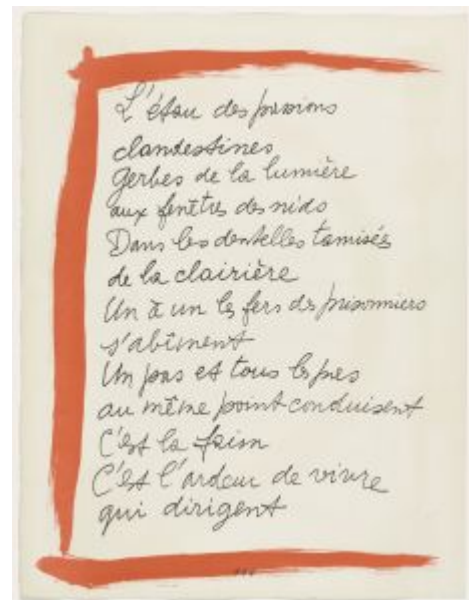 L'étau des passions
clandestines
gerbes de la lumière
aux fenêtres des nids
Dans les dentelles tamisées
de la clairière
Un à un les fers des prisonniers
s'abîment
Un pas et tous les pas
au même point conduisent
C'est la faim
C'est l'ardeur de vivre
qui dirigent